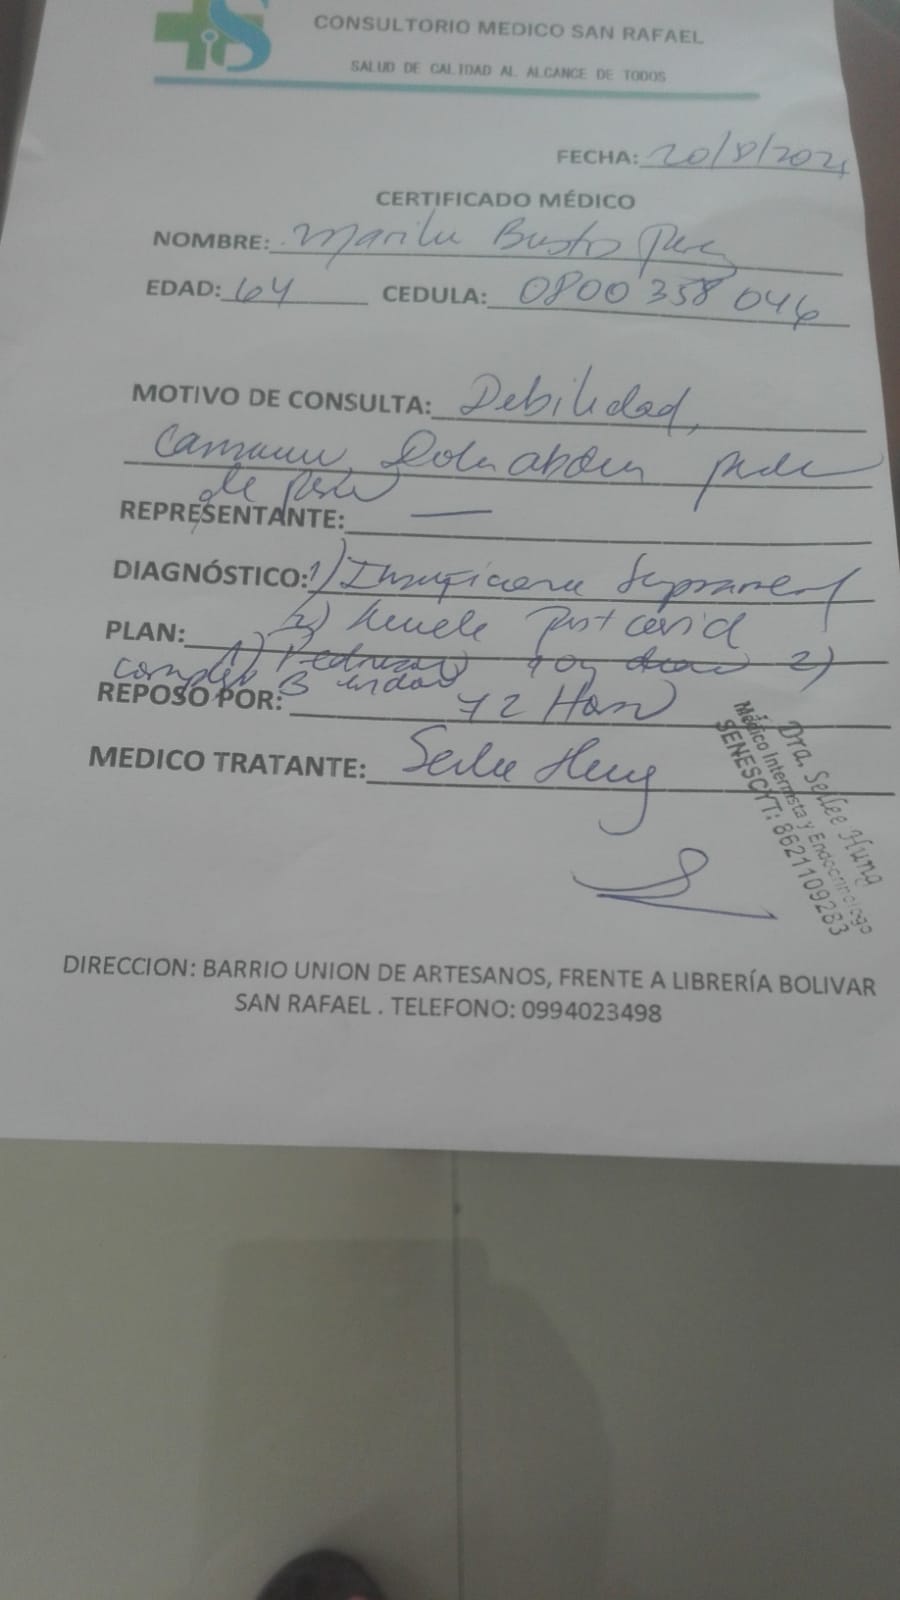 CONSULTORIO MEDICO SAN RAFAEL
SALUD DE CALIDAD AL ALCANCE DE TODOS
FECHA: 20/8/2021
CERTIFICADO MÉDICO
NOMBRE: Marilu Bustos
EDAD: 64 CEDULA: 0800358046
MOTIVO DE CONSULTA: Debilidad,
Dolor abdom
de peso
REPRESENTANTE: —
DIAGNÓSTICO: 1) Insuficiencia Suprarrenal
2) Secuela Post covid
PLAN: 1) 2)
complejo B
REPOSO POR: 72 Horas
MEDICO TRATANTE: Seilee Hung
Dra. Seilee Hung
Médico Internista y Endocrinólogo
SENESCYT: 8621109283
DIRECCION: BARRIO UNION DE ARTESANOS, FRENTE A LIBRERÍA BOLIVAR
SAN RAFAEL . TELEFONO: 0994023498